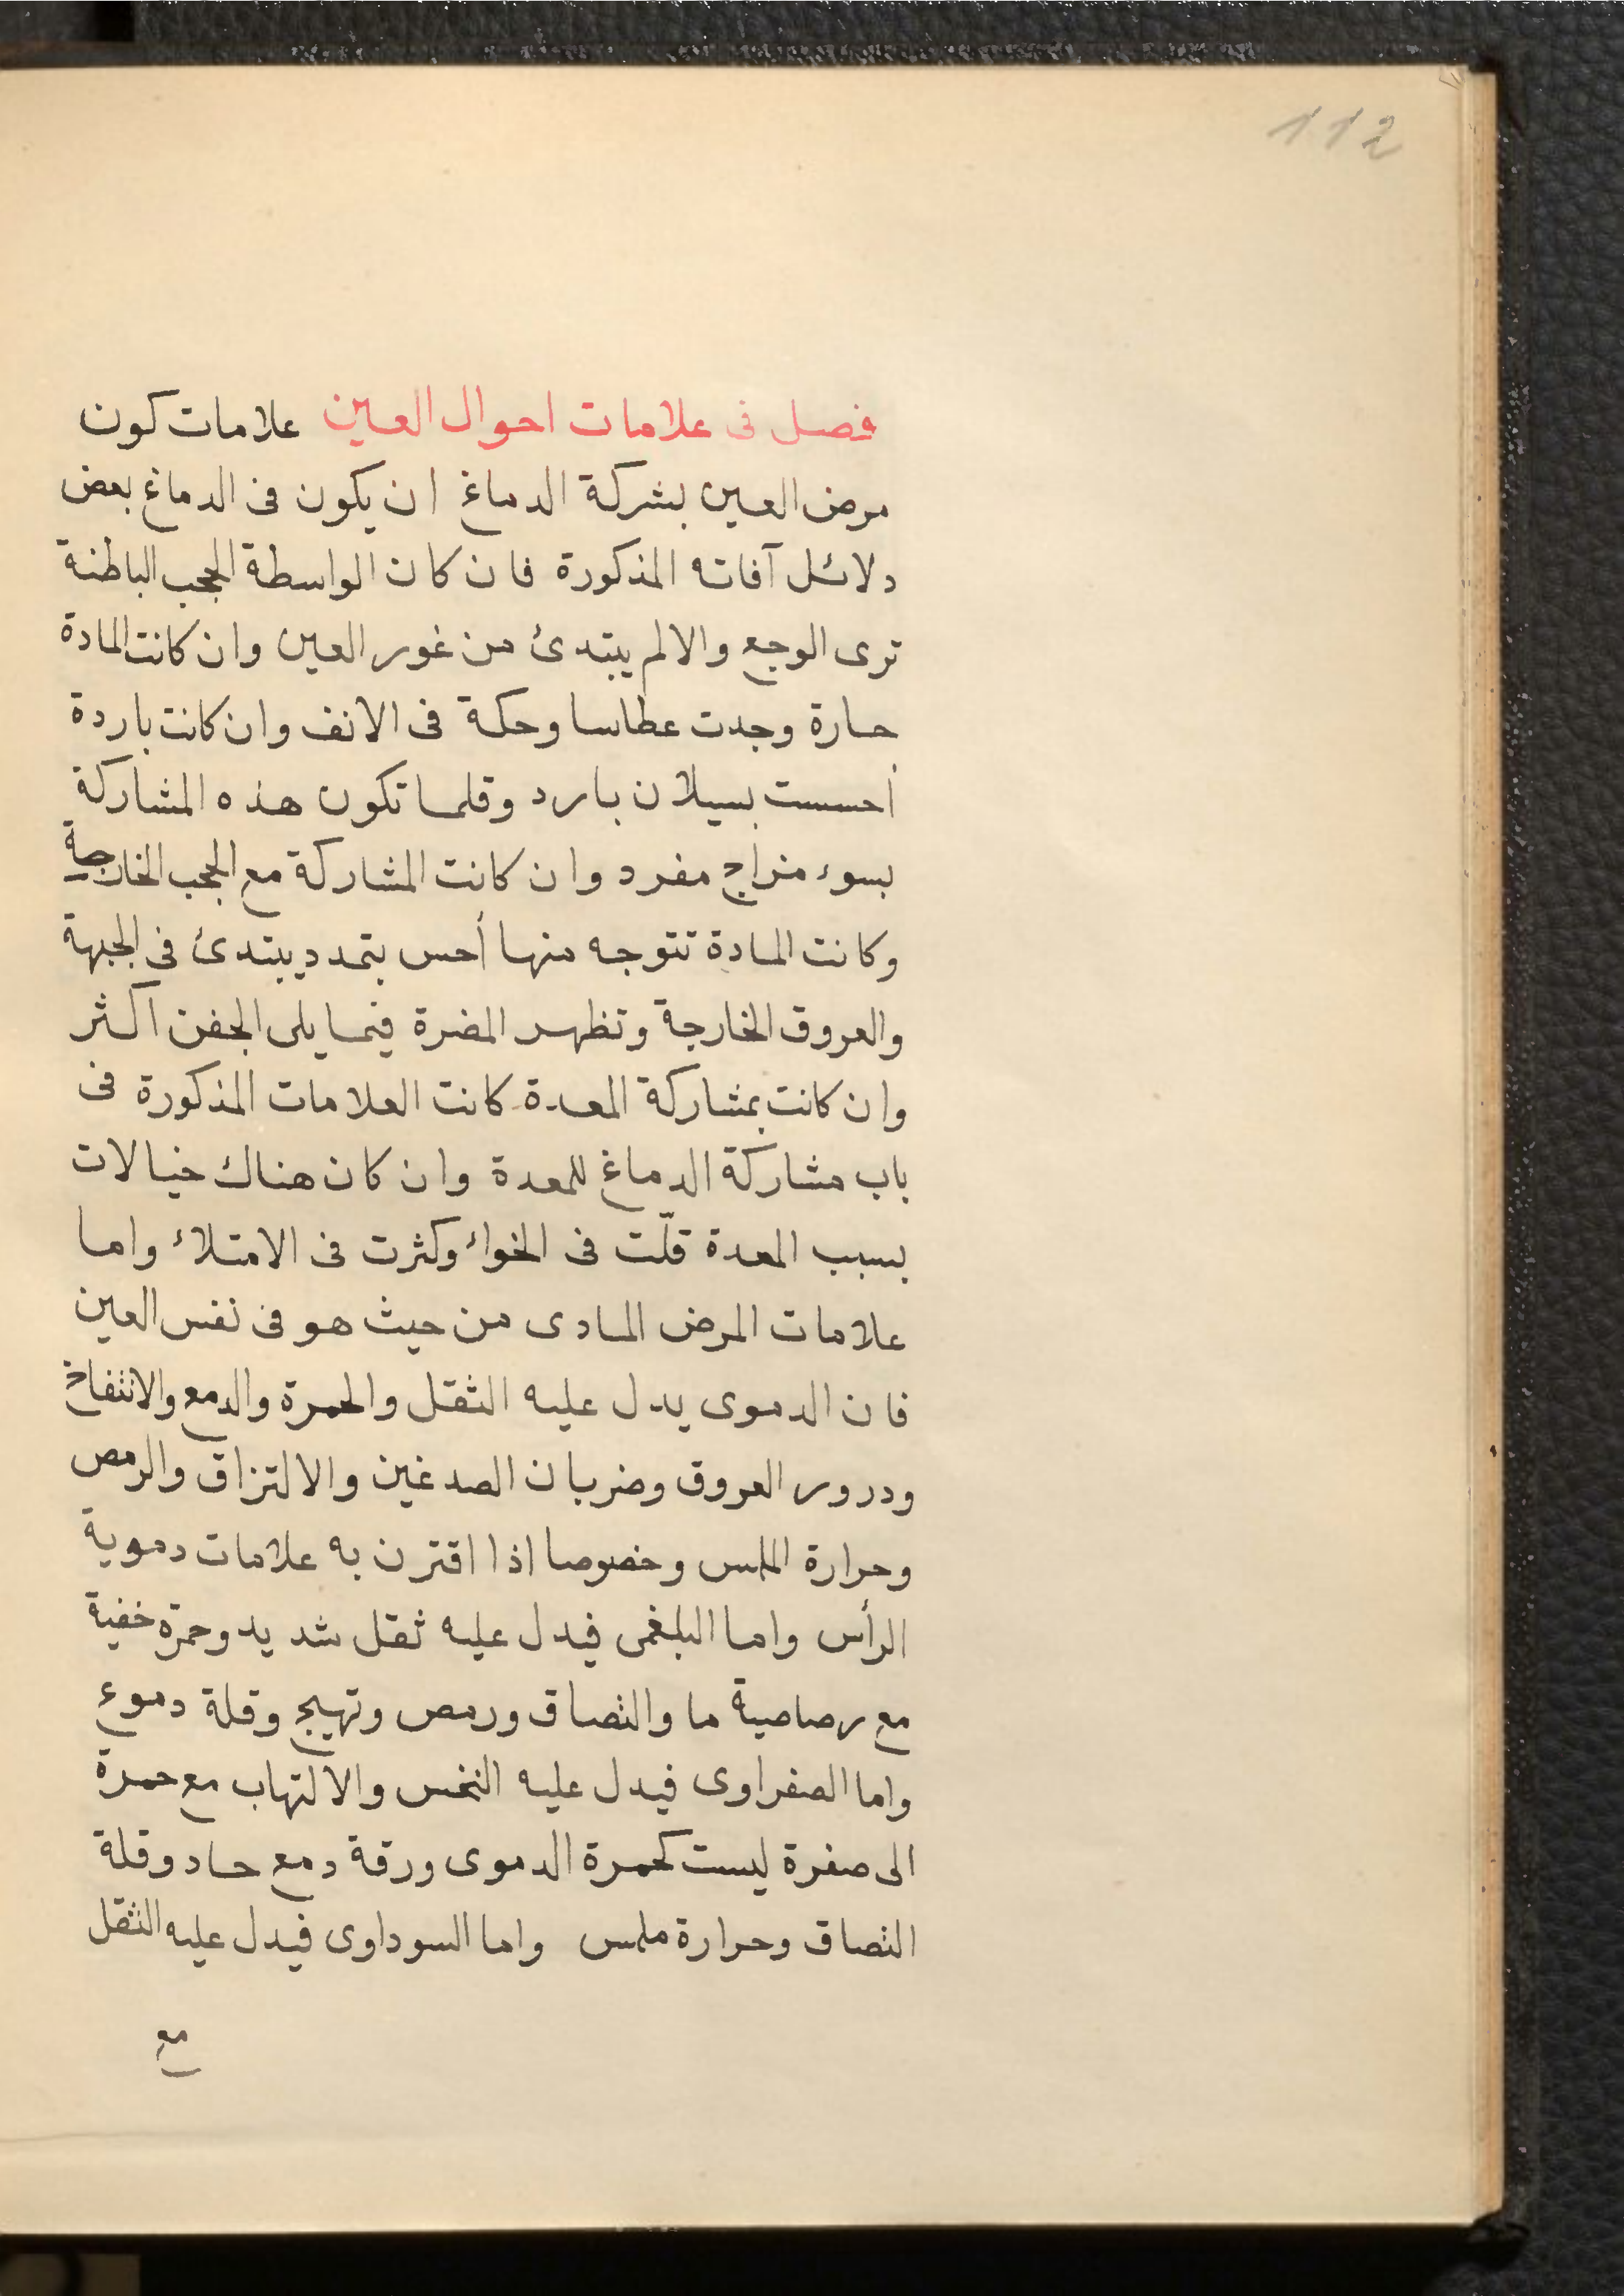 112
فصل فى علامات احوال العين علامات كون
مرض العين بشركة الدماغ ان يكون فى الدماغ بعض
دلائل آفاته المذكورة فان كان الواسطة الحجب الباطنة
ترى الوجع والالم يبتدئ من غور العين وان كانت المادة
حارة وجدت عطاسا وحكة فى الانف وان كانت باردة
أحسست بسيلان بارد وقلما تكون هذه المشاركة
بسوء مزاج مفرد وان كانت المشاركة مع الحجب الخارجة
وكانت المادة تتوجه منها أحس بتمدد يبتدئ فى الجبهة
والعروق الخارجة وتظهر المضرة فيما يلى الجفن اكثر
وان كانت بمشاركة المعدة كانت العلامات المذكورة فى
باب مشاركة الدماغ للمعدة وان كان هناك خيالات
بسبب المعدة قلّت فى الخواء وكثرت فى الامتلاء واما
علامات المرض المادى من حيث هو فى نفس العين
فان الدموى يدل عليه الثقل والحمرة والدمع والانتفاخ
ودرور العروق وضربان الصدغين والالتزاق والرمص
وحرارة الملمس وخصوصا اذا اقترن به علامات دموية
الرأس واما البلغمى فيدل عليه ثقل شديد وحمرة خفية
مع رصاصية ما والتصاق ورمص وتهيج وقلة دموع
واما الصفراوى فيدل عليه النخس والالتهاب مع حمرة
الى صفرة ليست كحمرة الدموى ورقة دمع حاد وقلة
التصاق وحرارة ملمس واما السوداوى فيدل عليه الثقل
مع